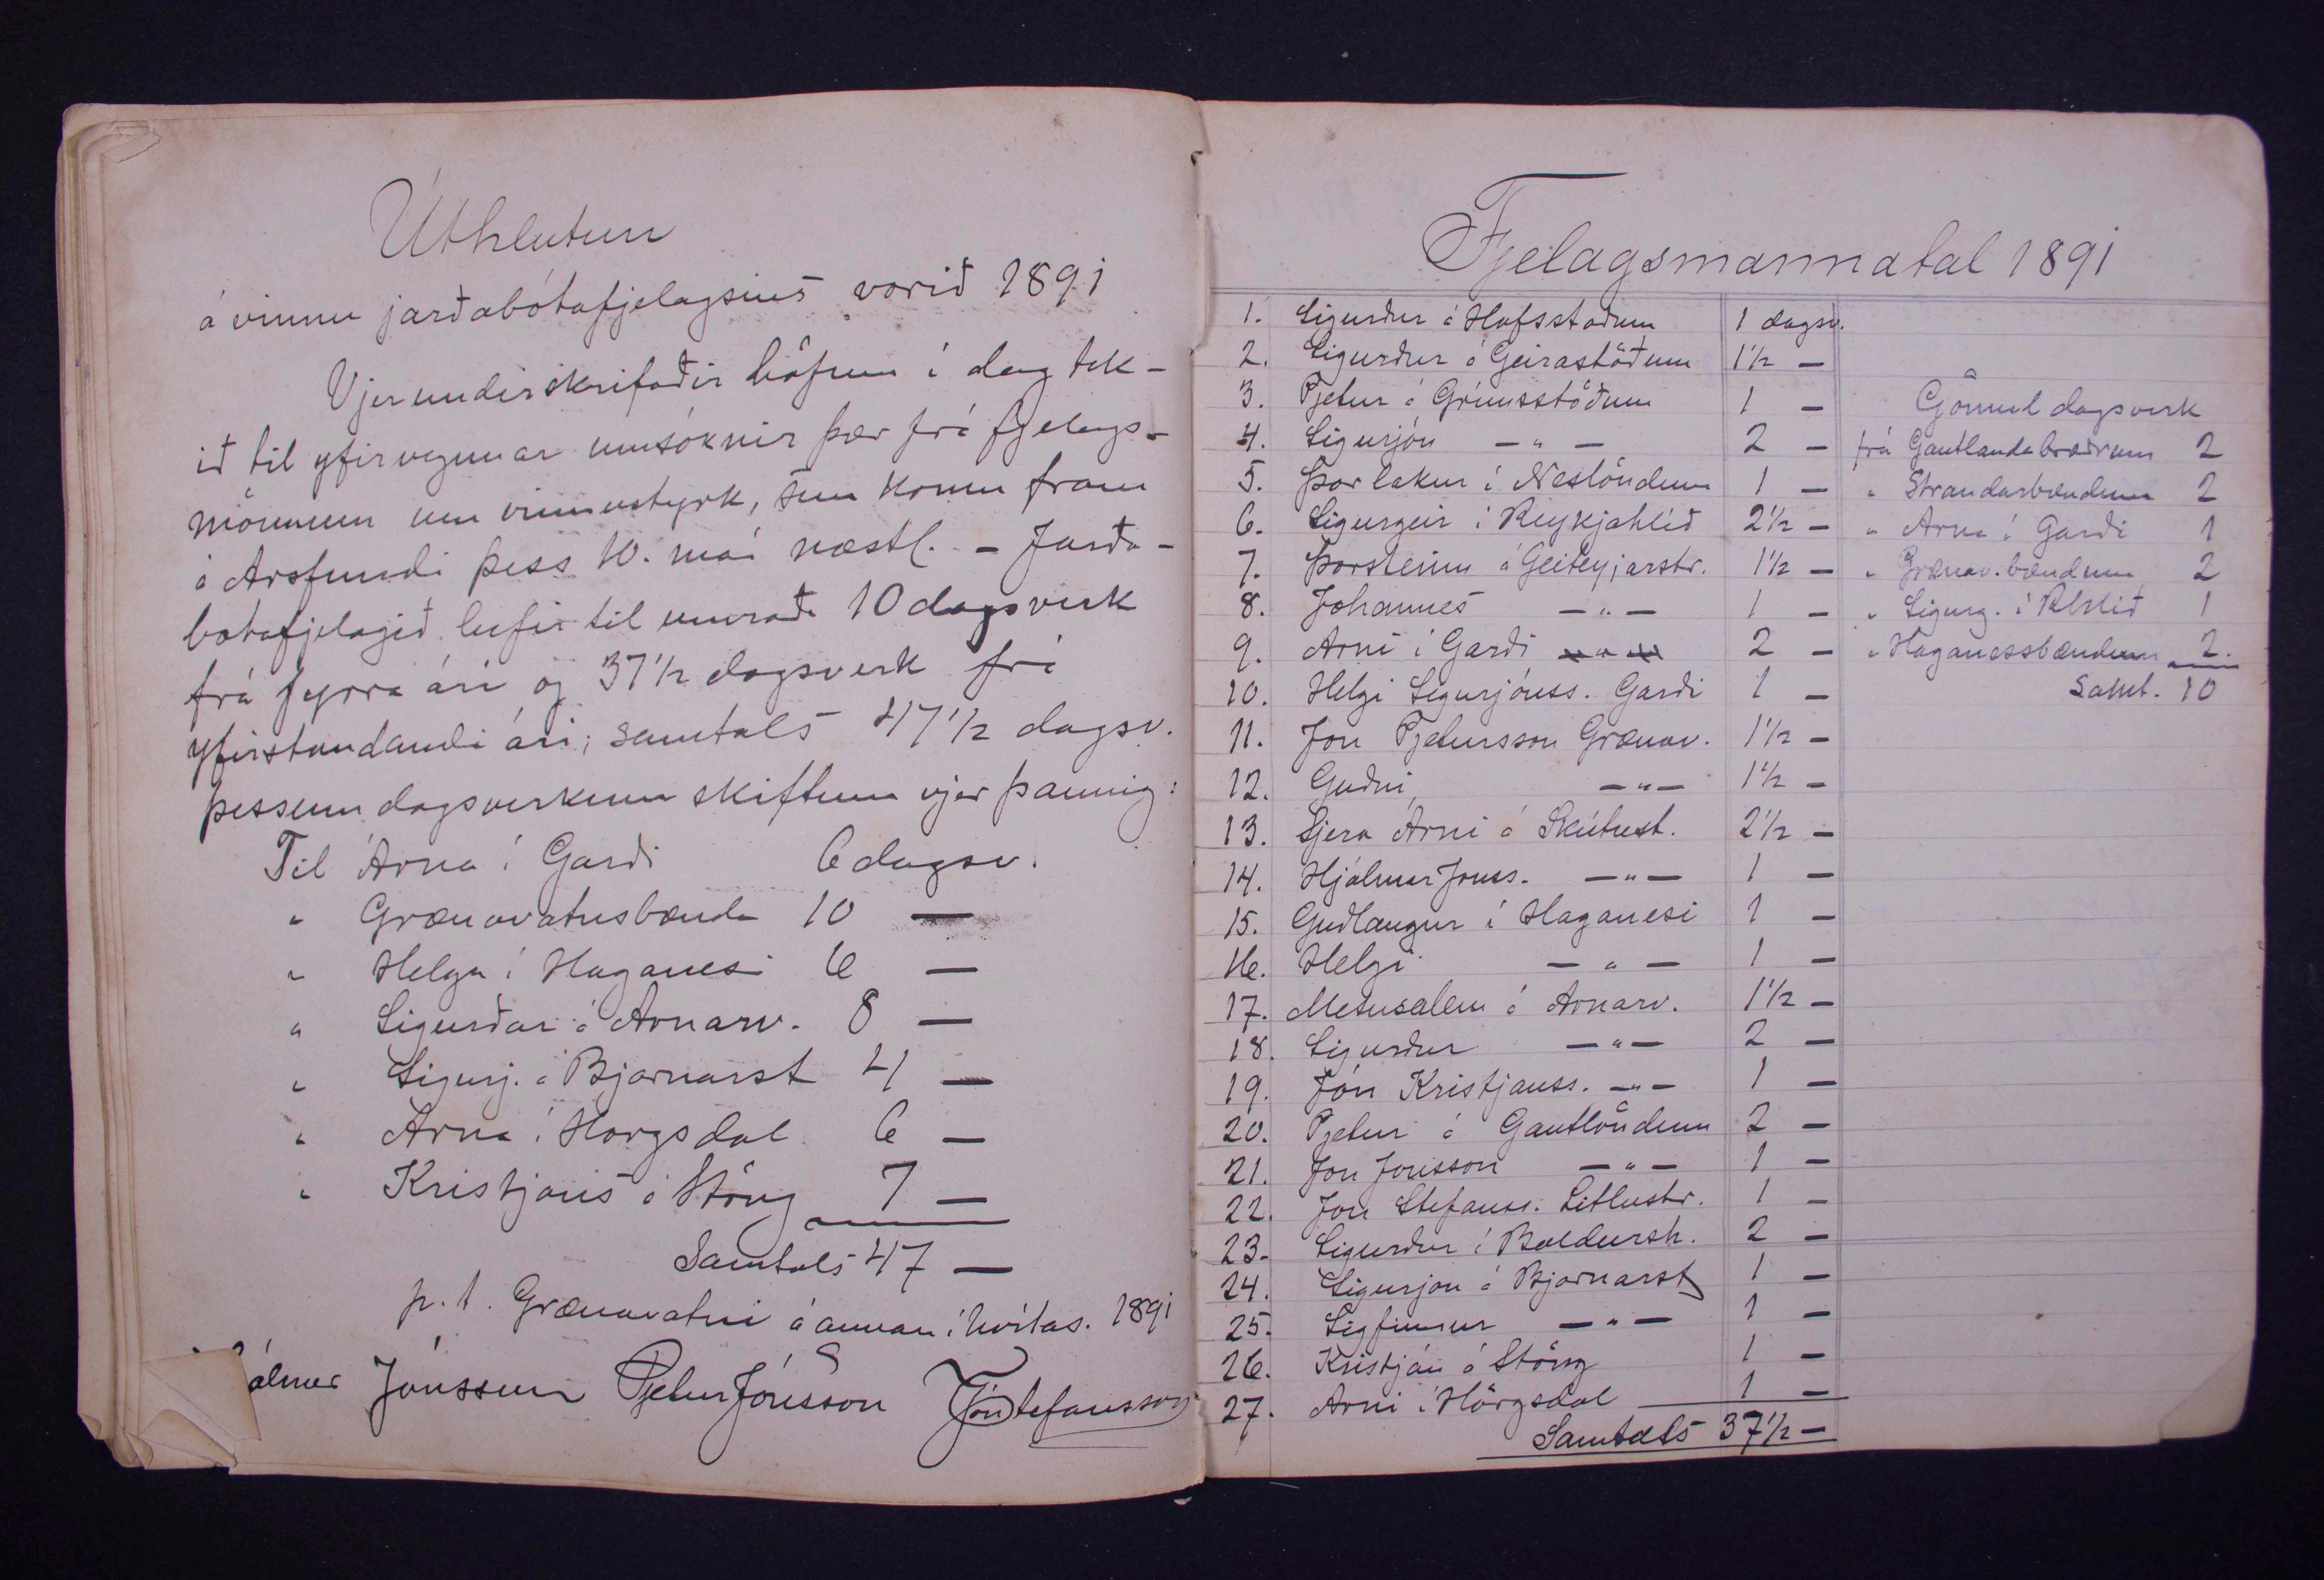 Úthlutun
á vinnu jarðabótafjelagsins vorið 1891
Vjer undirskrifaðir höfum í dag tek-
ið til yfirvegunar umsóknir þær frá fjelags-
mönnum um vinnustyrk, sem komu fram
á Arsfundi þess 10. maí næstl. - Jarða-
botafjelagið hefir til umraða 10 dagsverk
frá fyrra ári og 37 1/2 dagsverk frá
yfirstandandi ári; samtals 47 1/2 dagsv.
þessum dagsverkum skiftum vjer þannig:
Til Árna í Garði 6 dagsv.
" Grænavatnsbænda 10 —
" Helga í Haganesi 6 —
" Sigurðar á Arnarv. 8 —
" Sigurj. á Bjarnarst 4 —
" Arna í Horgsdal 6 —
" Kristjáns á Stöng 7 —
Samtals 47 —
p. t. Grænavatni á annan í hvítas. 1891
álmar Jónsson Pjetur Jónsson Jón Stefansson
Fjelagsmannatal 1891
1. Sigurður á Hofsstaðum 1 dagsv.
2. Sigurður á Geirastöðum 1 1/2 —
3. Pjetur á Grímsstöðum 1 —
4. Sigurjón — " — 2 —
5. Þorlakur í Neslöndum 1 —
6. Sigurgeir í Reykjahlíð 2 1/2 —
7. Þorsteinn á Geiteyjarstr. 1 1/2 —
8. Jóhannes — " — 1 —
9. Arni í Garði — " — 2 —
10. Helgi Sigurjónss. Garði 1 —
11. Jón Pjetursson Grænav. 1 1/2 —
12. Guðni — " — 1 1/2 —
13. Sjera Arni á Skútust. 2 1/2 —
14. Hjálmar Jonss. — " — 1 —
15. Guðlaugur í Haganesi 1 —
16. Helgi — " — 1 —
17. Metusalem á Arnarv. 1 1/2 —
18. Sigurður — " — 2 —
19. Jón Kristjanss. — " — 1 —
20. Pjetur á Gautlöndum 2 —
21. Jon Jonsson — " — 1 —
22. Jon Stefanss. Litlustr. 1 —
23. Sigurður í Baldursh. 2 —
24. Sigurjon á Bjarnarst 1 —
25. Sigfinnur — " — 1 —
26. Kristján á Stöng 1 —
27. Arni í Hörgsdal 1 —
Samtals 37 1/2 —
Gömul dagsverk
frá Gautlandabræðrum 2
" Strandarbændum 2
" Arna í Garði 1
" Grænav.bændum 2
" Sigurg. í Rhlíð 1
" Haganessbændum 2.
Samt. 10